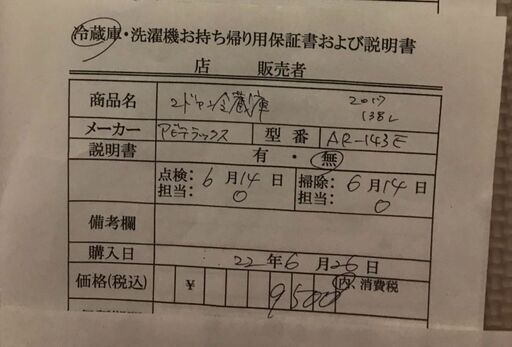 冷蔵庫・洗濯機お持ち帰り用保証書および説明書
店 販売者
商品名 2ドア冷蔵庫 2017 138L
メーカー アビテラックス 型番 AR-143E
説明書 有・無
点検: 6月14日 掃除: 6月14日
担当: 0 担当: 0
備考欄
購入日 22年6月26日
価格(税込) ¥ 9500 内、消費税